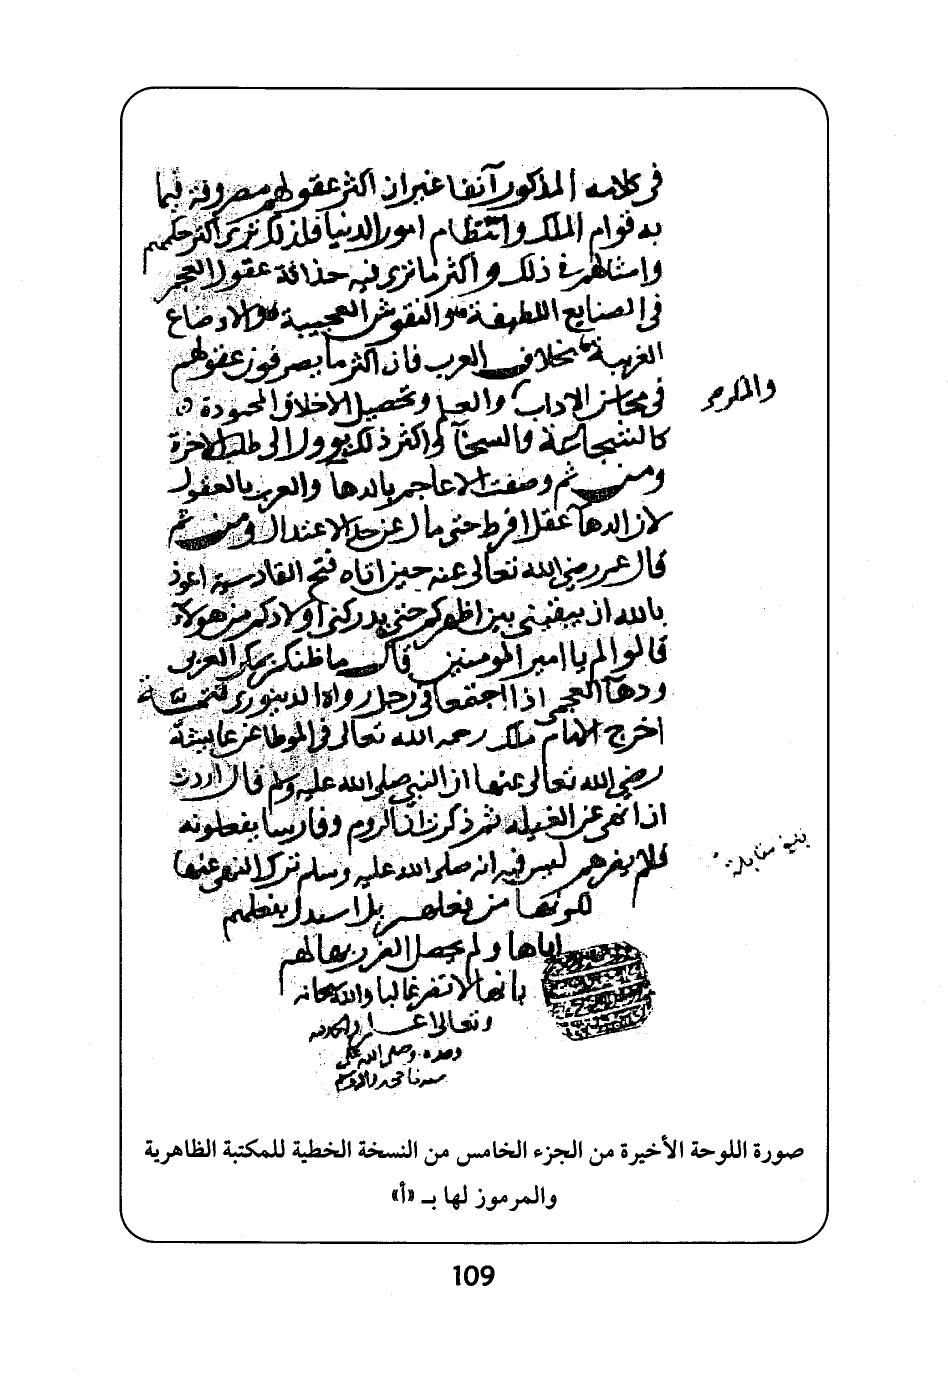 في كلامه المذكور آنفا غير ان اكثر عقولهم مصروفة فيما
به قوام الملك وانتظام امور الدنيا فلذلك ترى اكثر حكمهم
وامثالهم في ذلك واكثر ما ترى فيه حذاقة عقول العجم
في الصنايع اللطيفة والنقوش العجيبة والاوضاع
الغريبة بخلاف العرب فان اكثر ما يصرفون عقولهم
في محاسن الاداب والعلم وتحصيل الاخلاق المحمودة
والمكرم
كالشجاعة والسخآ اكثر ذلك يوول الى طلب الاخرة
ومن ثم وصفت الاعاجم بالدها والعرب بالعقول
لان الدهآ عقل افرط حتى مال عن حد الاعتدال ومن ثم
قال عمر رضي الله تعالى عنه حين اتاه فتح القادسية اعوذ
بالله ان يبقيني بين اظهركم حتى يدركني اولادكم من هولآء
قالوا لم يا امير المومنين قال ما ظنكم بمكر العربي
ودهآ العجمي اذا اجتمعا في رجل رواه الدينوري تتمة
اخرج الامام ملك رحمه الله تعالى في الموطا عن عايشة
رضي الله تعالى عنها ان النبي صلى الله عليه وسلم قال اردت
ان انهى عن الغيله ثم ذكرت ان الروم وفارسا يفعلونه
فلا يضرهم ليس فيه انه صلى الله عليه وسلم ترك النهي عنها
مقابلة
لكونها من فعلهم بل استدل بفعلهم
اياها ولم يحصل الضرر بها لهم
بانها لا تضر غالبا والله سبحانه
وتعالى اعلم
وحده وصلى الله على
سيدنا محمد واله وسلم
صورة اللوحة الأخيرة من الجزء الخامس من النسخة الخطية للمكتبة الظاهرية
والمرموز لها بـ «أ»
109